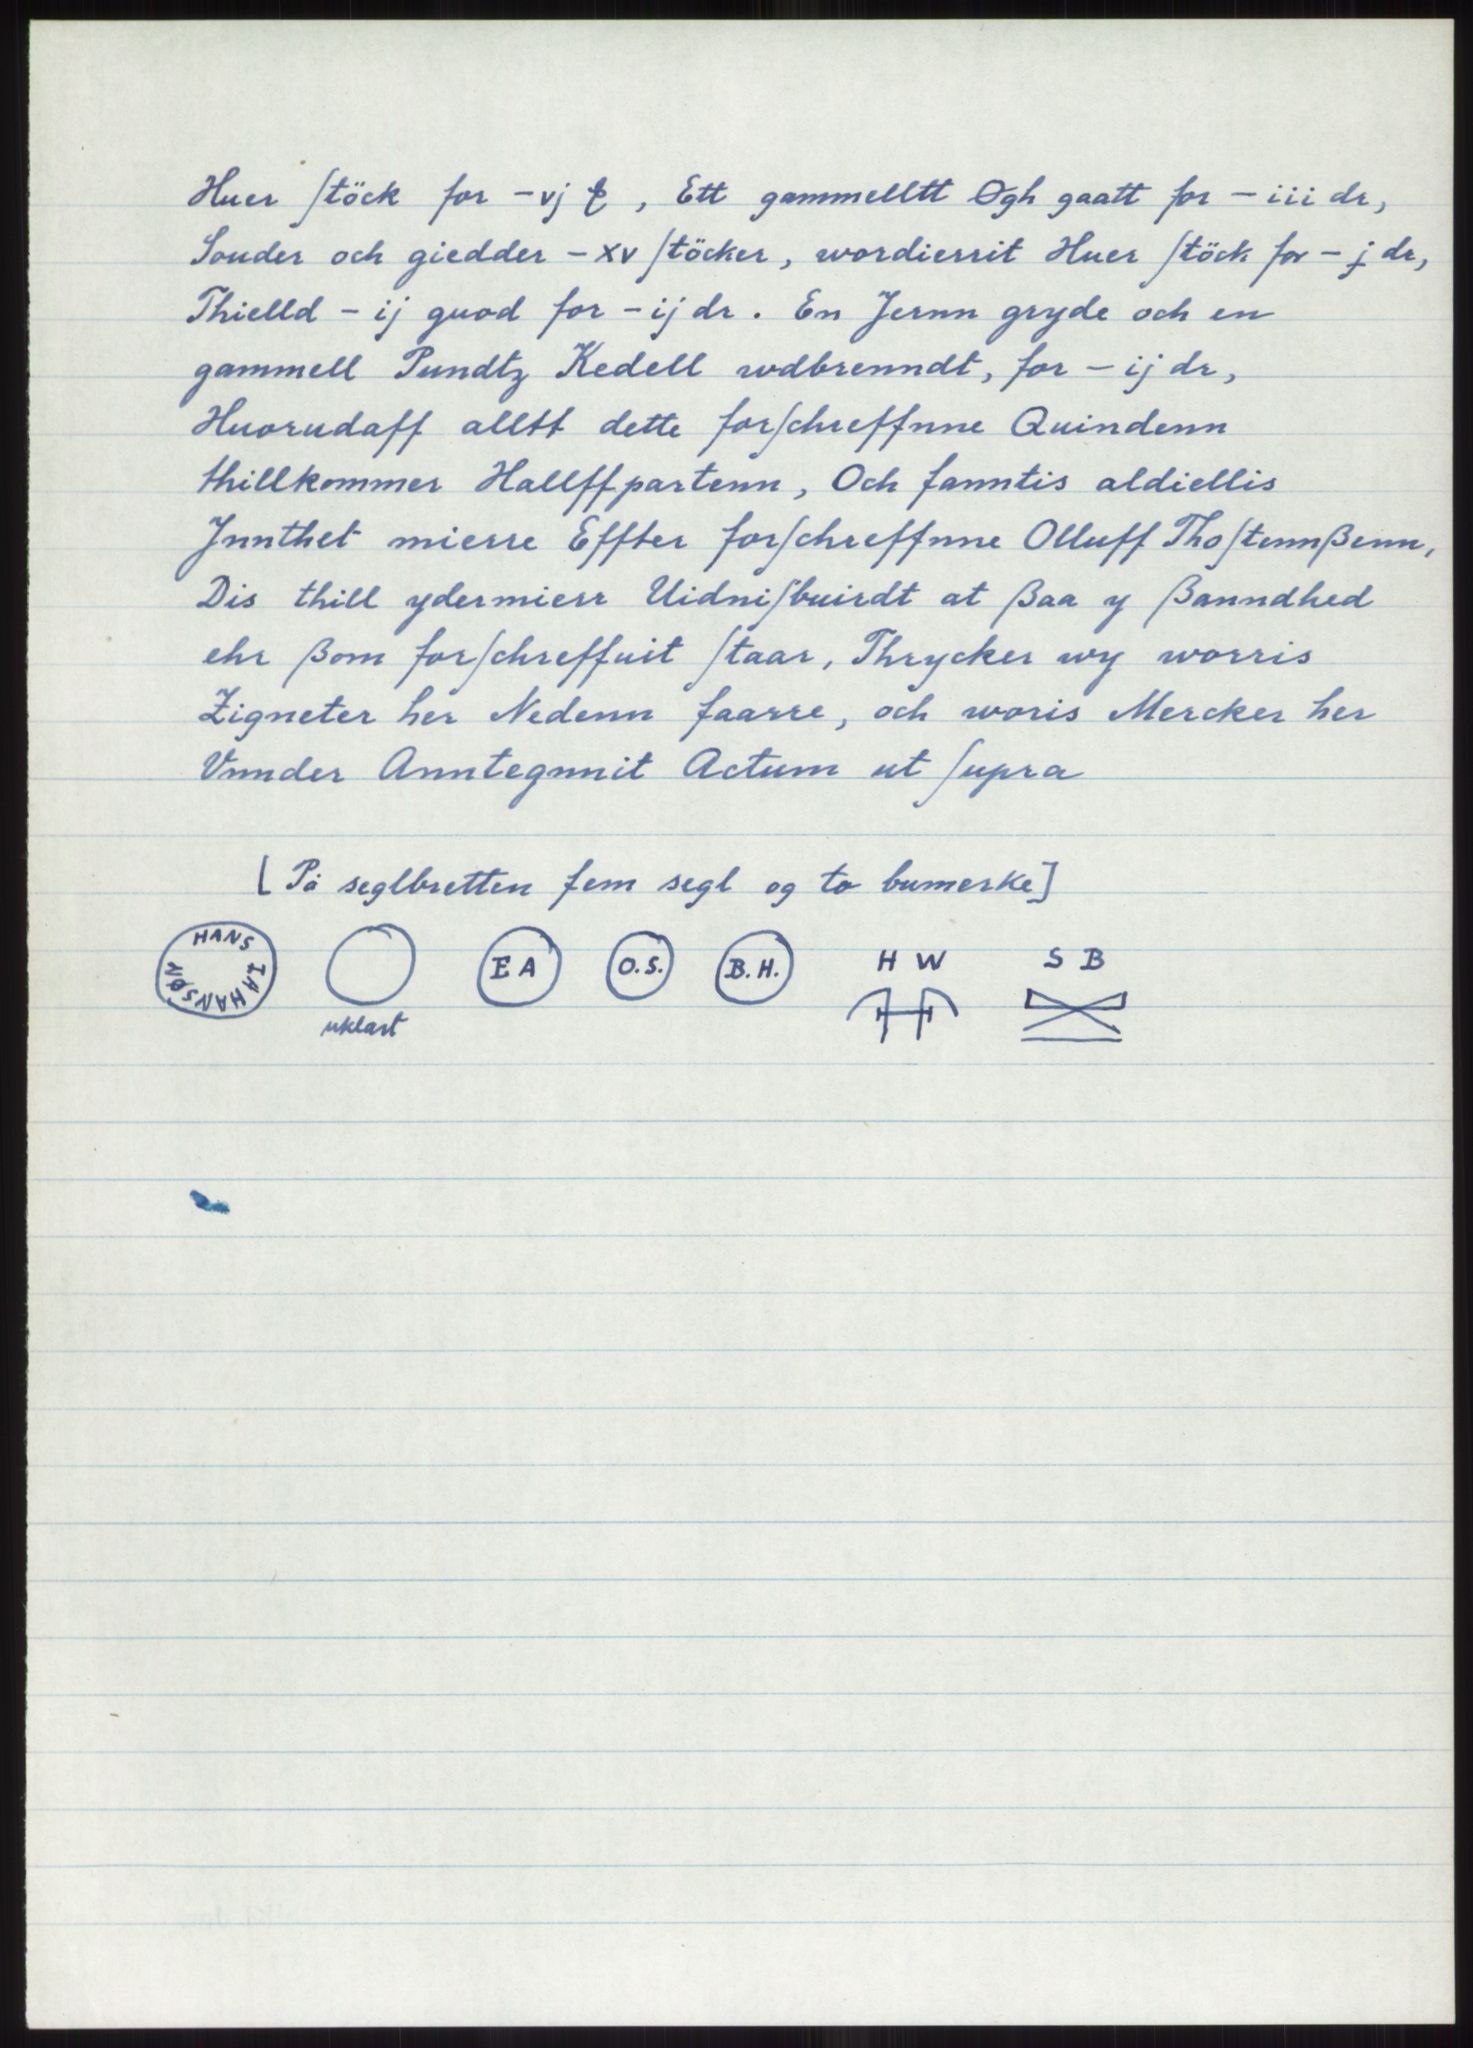 Huer ſtöck for – vj ꝑ, Ett gammelltt Øgh gaatt for – iii dr,
Souder och giedder – xv ſtöcker, wordierrit Huer ſtöck for – j dr,
Thielld – ij guod for – ij dr. En Jernn gryde och en
gammell Pundtz Kedell wdbrenndt, for – ij dr,
Huorudaff alltt dette forſchreffnne Quindenn
thillkommer Hallffpartenn, Och fanntis aldiellis
Jnnthet mierre Effter forſchreffnne Olluff Thoſtennßenn,
Dis thill ydermierr Uidniſbuirdt at ßaa y ßanndhed
ehr ßom forſchreffuit ſtaar, Thrycker wy worris
Zigneter her Nedenn faarre, och woris Mercker her
Vnnder Anntegnnit Actum ut ſupra
[På seglbretten fem segl og to bumerke]
HANS IAHANSØN E A O.S. B.H. H W S B
uklart